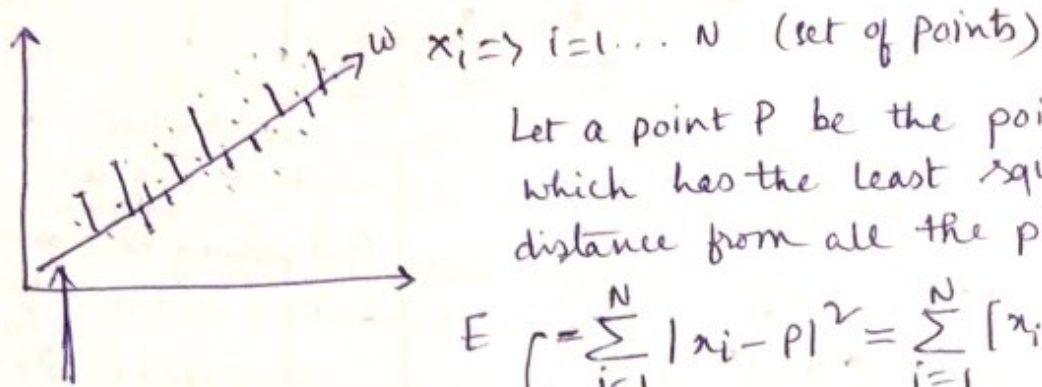 w xi => i=1... N (set of points)
Let a point P be the poi
which has the least squ
distance from all the p
E = N∑i=1 |xi - P|² = N∑i=1 [xi